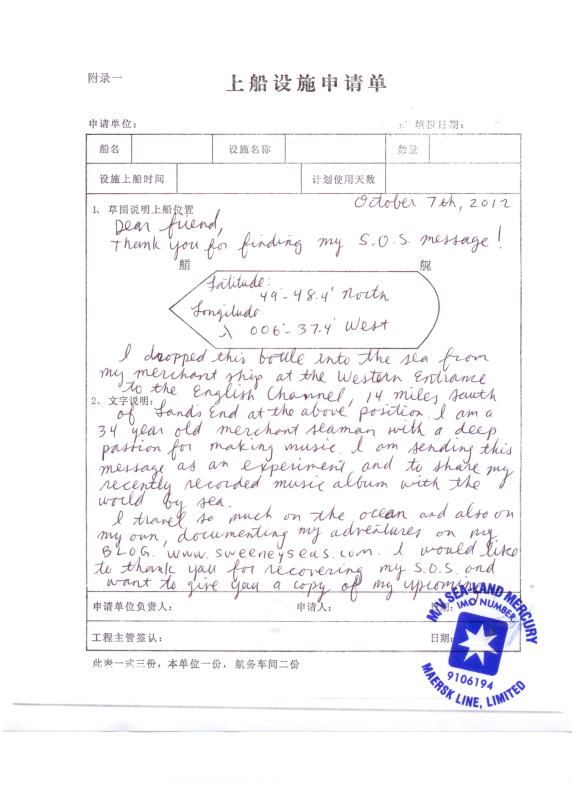 附录一
上船设施申请单
申请单位: 填报日期:
船名 设施名称 数量
设施上船时间 计划使用天数
October 7th, 2012
1、草图说明上船位置
Dear friend,
Thank you for finding my S.O.S. message!
船 艉
Latitude:
49°-48.4' North
Longitude
006°-37.4' West
I dropped this bottle into the sea from
my merchant ship at the Western Entrance
to the English Channel, 14 miles south
2、文字说明:
of Lands End at the above position. I am a
34 year old merchant seaman with a deep
passion for making music. I am sending this
message as an experiment, and to share my
recently recorded music album with the
world by sea.
I travel so much on the ocean and also on
my own, documenting my adventures on my
BLOG. www.sweeneyseas.com. I would like
to thank you for recovering my S.O.S. and
want to give you a copy of my upcoming
申请单位负责人: 申请人:
工程主管签认: 日期:
此表一式三份，本单位一份，航务车间二份
M/V SEA-LAND MERCURY
IMO NUMBER
9106194
MAERSK LINE, LIMITED